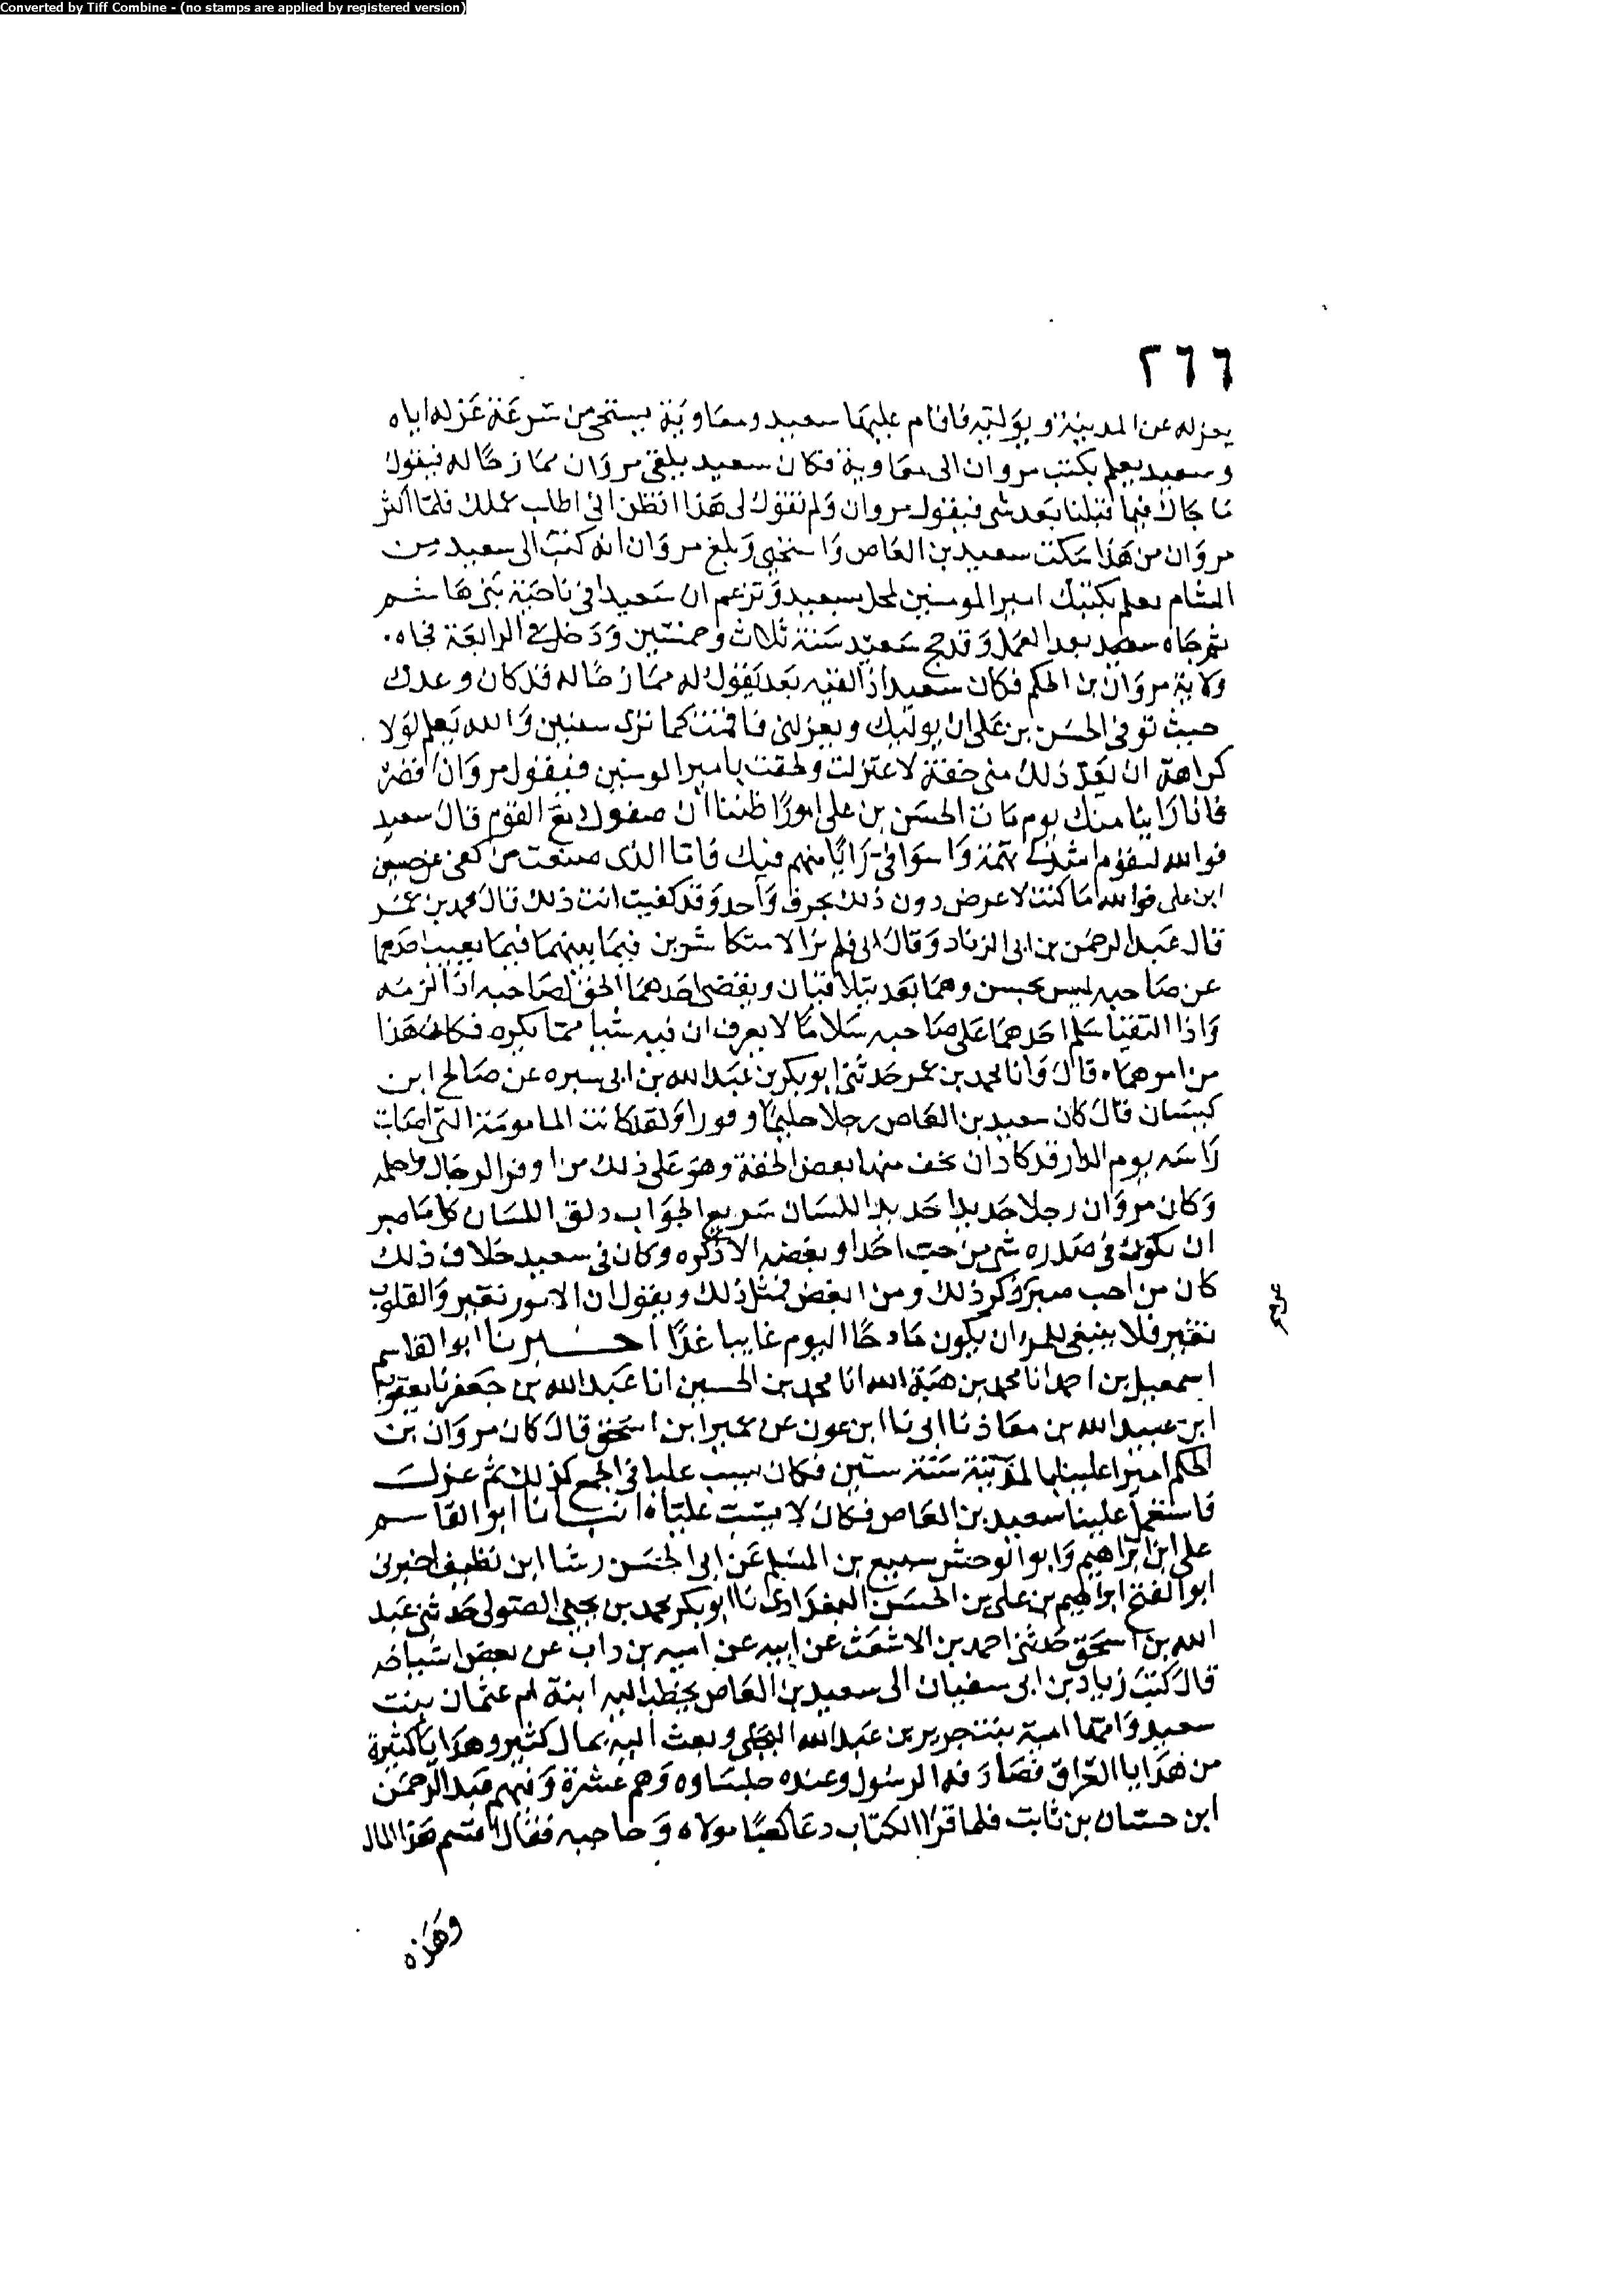 Converted by Tiff Combine - (no stamps are applied by registered version)
٢٦٦
يعزله عن المدينة ويوليه فاقام عليها سعيد ومعاوية يستحي من سرعة عزله اياه
وسعيد يعلم بكتب مروان الى معاوية فكان سعيد يلقى مروان ممازحا له فيقول
ما جاك فيما قبلنا بعد شي فيقول مروان ولم تقول لي هذا اتظن اني اطلب عملك فلما اكثر
مروان من هذا سكت سعيد بن العاص واستحيى وبلغ مروان انه كتب الى سعيد من
الشام يعلم بكتبك امير المومنين تمحل بسعيد وتزعم ان سعيدا في ناحية بني هاشم
ثم جاه سعيد بعد العمل وقد حج سعيد سنة ثلاث وخمسين ودخل في الرابعة فجاه
ولاية مروان بن الحكم فكان سعيد اذا لقيه بعد يقول له ممازحا له قد كان وعدك
حيث توفي الحسن بن علي ان يوليك ويعزلني فاقمت كما ترى سنين والله يعلم لولا
كراهة ان يعد ذلك مني خفة لاعتزلت ولحقت بامير المومنين فيقول مروان اقصر
فانا راينا منك يوم مات الحسن بن علي امورا ظننا ان صغوك مع القوم قال سعيد
فوالله للقوم اشد لي تهمة واسوا في رايا منهم فيك فاما الذى صنعت من كفي عن حسين
ابن علي فوالله ما كنت لاعرض دون ذلك بحرف واحد وقد كفيت انت ذلك قال محمد بن عمر
قال عبد الرحمن بن ابى الزناد وقال ابي فلم يزالا متكاشرين فيما بينهما فيما يغيب احدهما
عن صاحبه ليس بحسن وهما بعد يتلاقيان ويقضي احدهما الحق لصاحبه اذا لزمه
واذا التقيا سلم احدهما على صاحبه سلاما لا يعرف ان فيه شيا مما يكره فكان هذا
من امرهما قال وانا محمد بن عمر حدثني ابو بكر بن عبد الله بن ابى سبره عن صالح ابن
كيسان قال كان سعيد بن العاص رجلا حليما وقورا ولقد كانت المامومة التى اصابت
راسه يوم الدار قد كاد ان يخف منها بعض الخفة وهو على ذلك من اوقر الرجال واحلمه
وكان مروان رجلا حديدا حديد اللسان سريع الجواب ذلق اللسان كل ما صبر
ان يكون في صدره شي من حب احد او بغضه الا ذكره وكان في سعيد خلاف ذلك
كان من احب صبر وذكر ذلك ومن ابغض فمثل ذلك ويقول ان الامور تغير والقلوب
تغير فلا ينبغي للمر ان يكون مادحا اليوم غايبا غدا اخبرنا ابو القاسم
اسمعيل بن احمد انا محمد بن هبة الله انا محمد بن الحسين انا عبد الله بن جعفر نا يعقوب
ابن عبيد الله بن معاذ نا ابى نا ابن عون عن عمير ابن اسحق قال كان مروان بن
الحكم اميرا علينا بالمدينة سنة ستين فكان يسب عليا في الجمع كذلك ثم عزل
فاستعمل علينا سعيد بن العاص فكان لا يسب عليا انبانا ابو القاسم
علي ابن ابراهيم وابو الوحش سبيع بن المسلم عن ابى الحسن رشا ابن نظيف اخبرنى
ابو الفتح ابراهيم بن علي بن الحسن البغدادى نا ابو بكر محمد بن يحيى الصولى حدثني عبد
الله بن اسحق حدثني احمد بن الاشعث عن ابيه عن امية بن داب عن بعض اشياخه
قال كتب زياد بن ابى سفيان الى سعيد بن العاص يخطب اليه ابنة ام عثمان بنت
سعيد وامها امية بنت جرير بن عبد الله البجلى وبعث اليه بمال كثير وهدايا كثيرة
من هدايا العراق فصادفه الرسول وعنده جلساوه وهم عشرة وفيهم عبد الرحمن
ابن حسان بن ثابت فلما قرا الكتاب دعا كعبا مولاه وحاجبه فقال اقسم هذا المال
وهذه